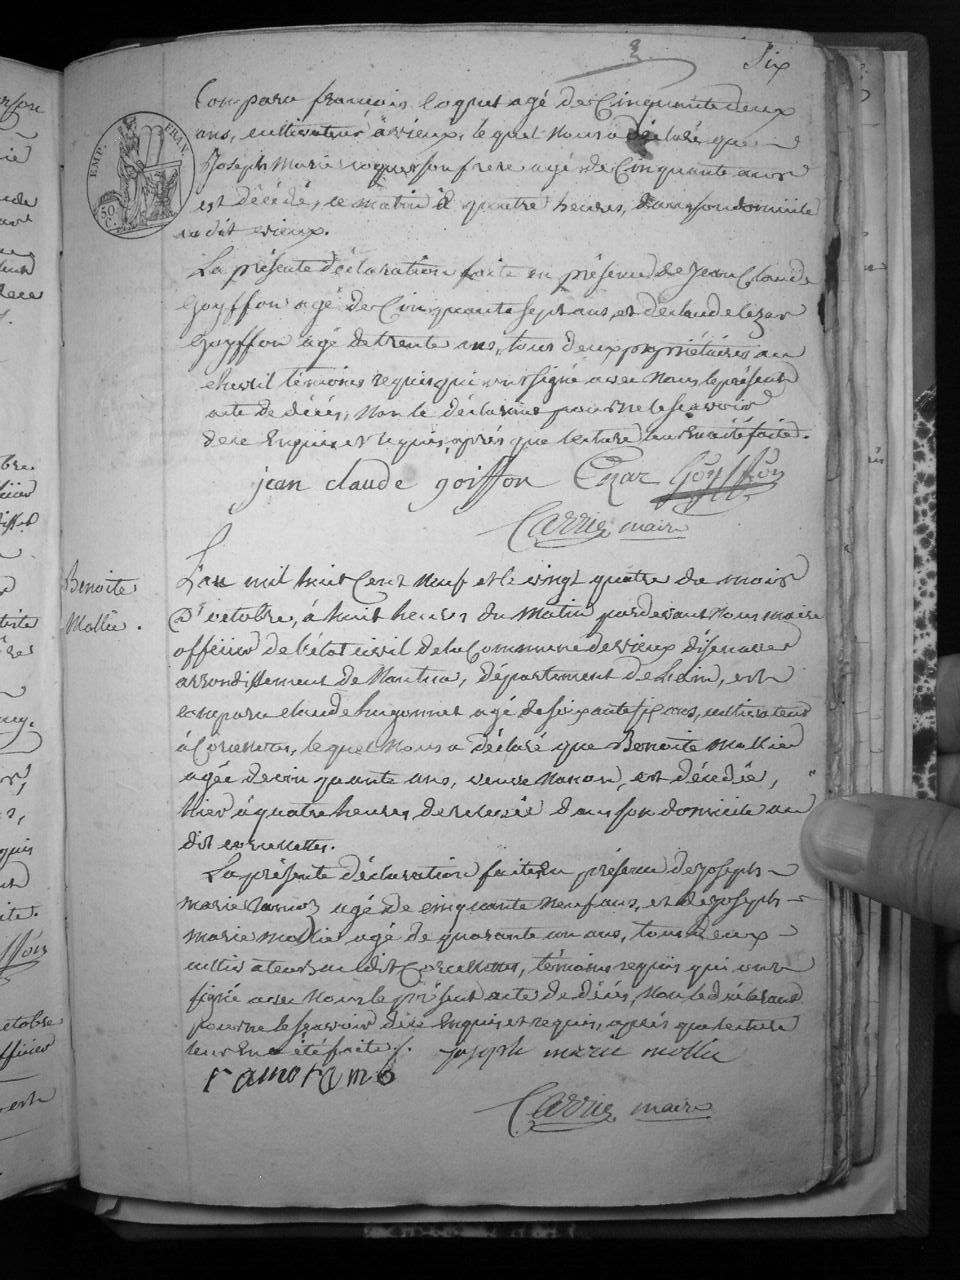 Six
Comparu françois coquet agé de Cinquante deux
ans, cultivateur à vieux, lequel nous a déclaré que
Joseph Marie coquet son frere agé de Cinquante ans
est décédé, ce matin à quatre heures, dans son domicile
au dit vieux.
La présente déclaration faite en présence de Jean Claude
Goyffon agé de Cinquante sept ans, et de claude Cezar
Goyffon agé de trente ans, tous deux propriétaires au
chevril témoins requis qui ont signé avec Nous le présent
acte de décés, non le déclarant pour ne le scavoir
de ce Enquis et requis, après que lecture leur En a été faite.
jean claude goiffon Cezar Goyffon
Carrier maire
Benoite
Mollie.
L'an mil huit Cent Neuf et le vingt quatre du mois
D'octobre, à huit heures du Matin pardevant Nous maire
officier de l'état civil de la Commune de vieux d'isenave
arrondissement de Nantua, département de Lain, est
comparu claude hugonnet agé de soixante six ans, cultivateur
à Corcelettes, lequel Nous a déclaré que Benoite Mollie
agée de cinquante ans, veuve, est décédée,
hier à quatre heures de relevée dans son domicile au
dit corcelettes.
La présente déclaration faite En présence de Joseph
marie agé de cinquante neuf ans, et de Joseph
marie mollie agé de quarante un ans, tous deux
cultivateurs au dit Corcelettes, témoins requis qui ont
signé avec Nous le présent acte de décés, Non le déclarant
pour ne le scavoir de ce Enquis et requis, après que lecture
leur En a été faite. joseph marie mollie
Carrier maire
EMP. FRAN.
50
C.